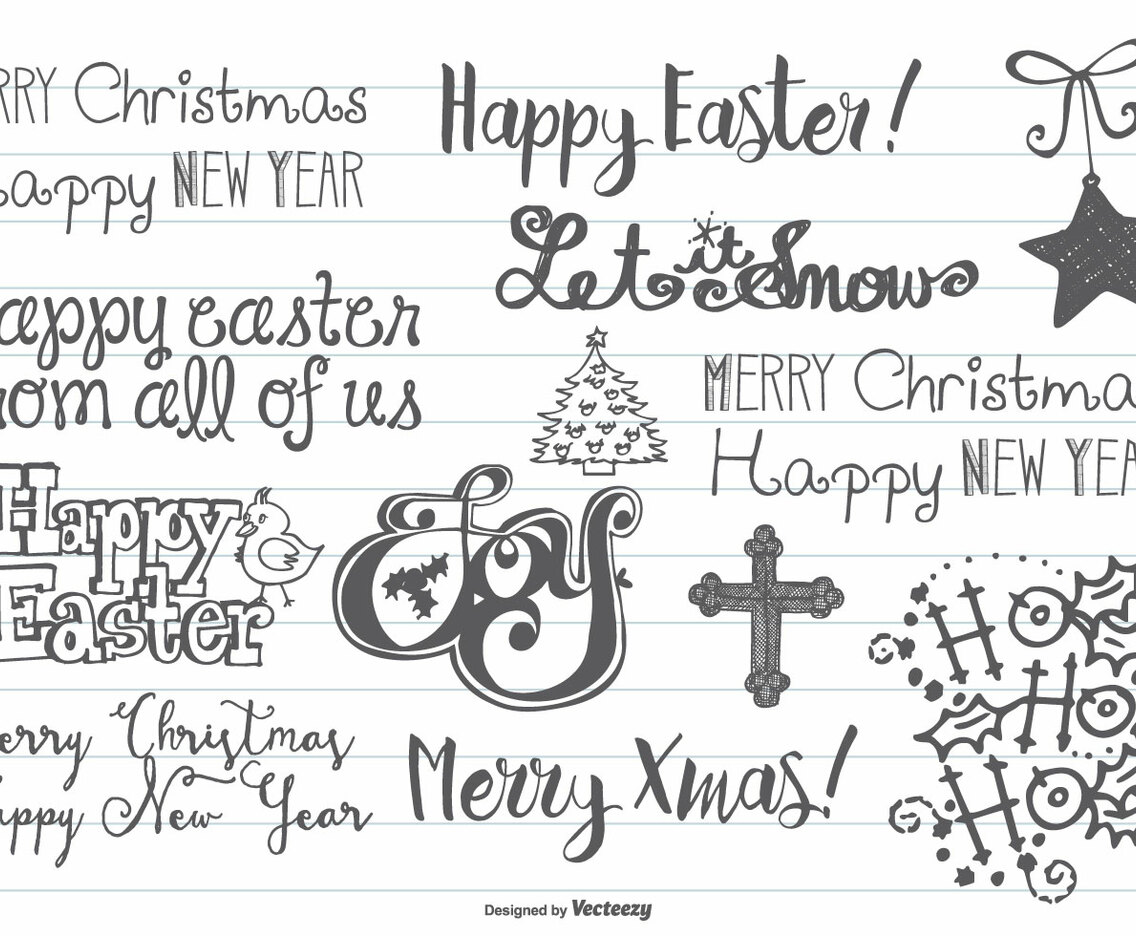 RRY Christmas
appy NEW YEAR
Happy Easter!
Let it Snow
appy easter
rom all of us
MERRY Christma
Happy NEW YEA
Happy
Easter
Joy
HO
HO
HO
erry Christmas
appy New Year
Merry Xmas!
Designed by Vecteezy